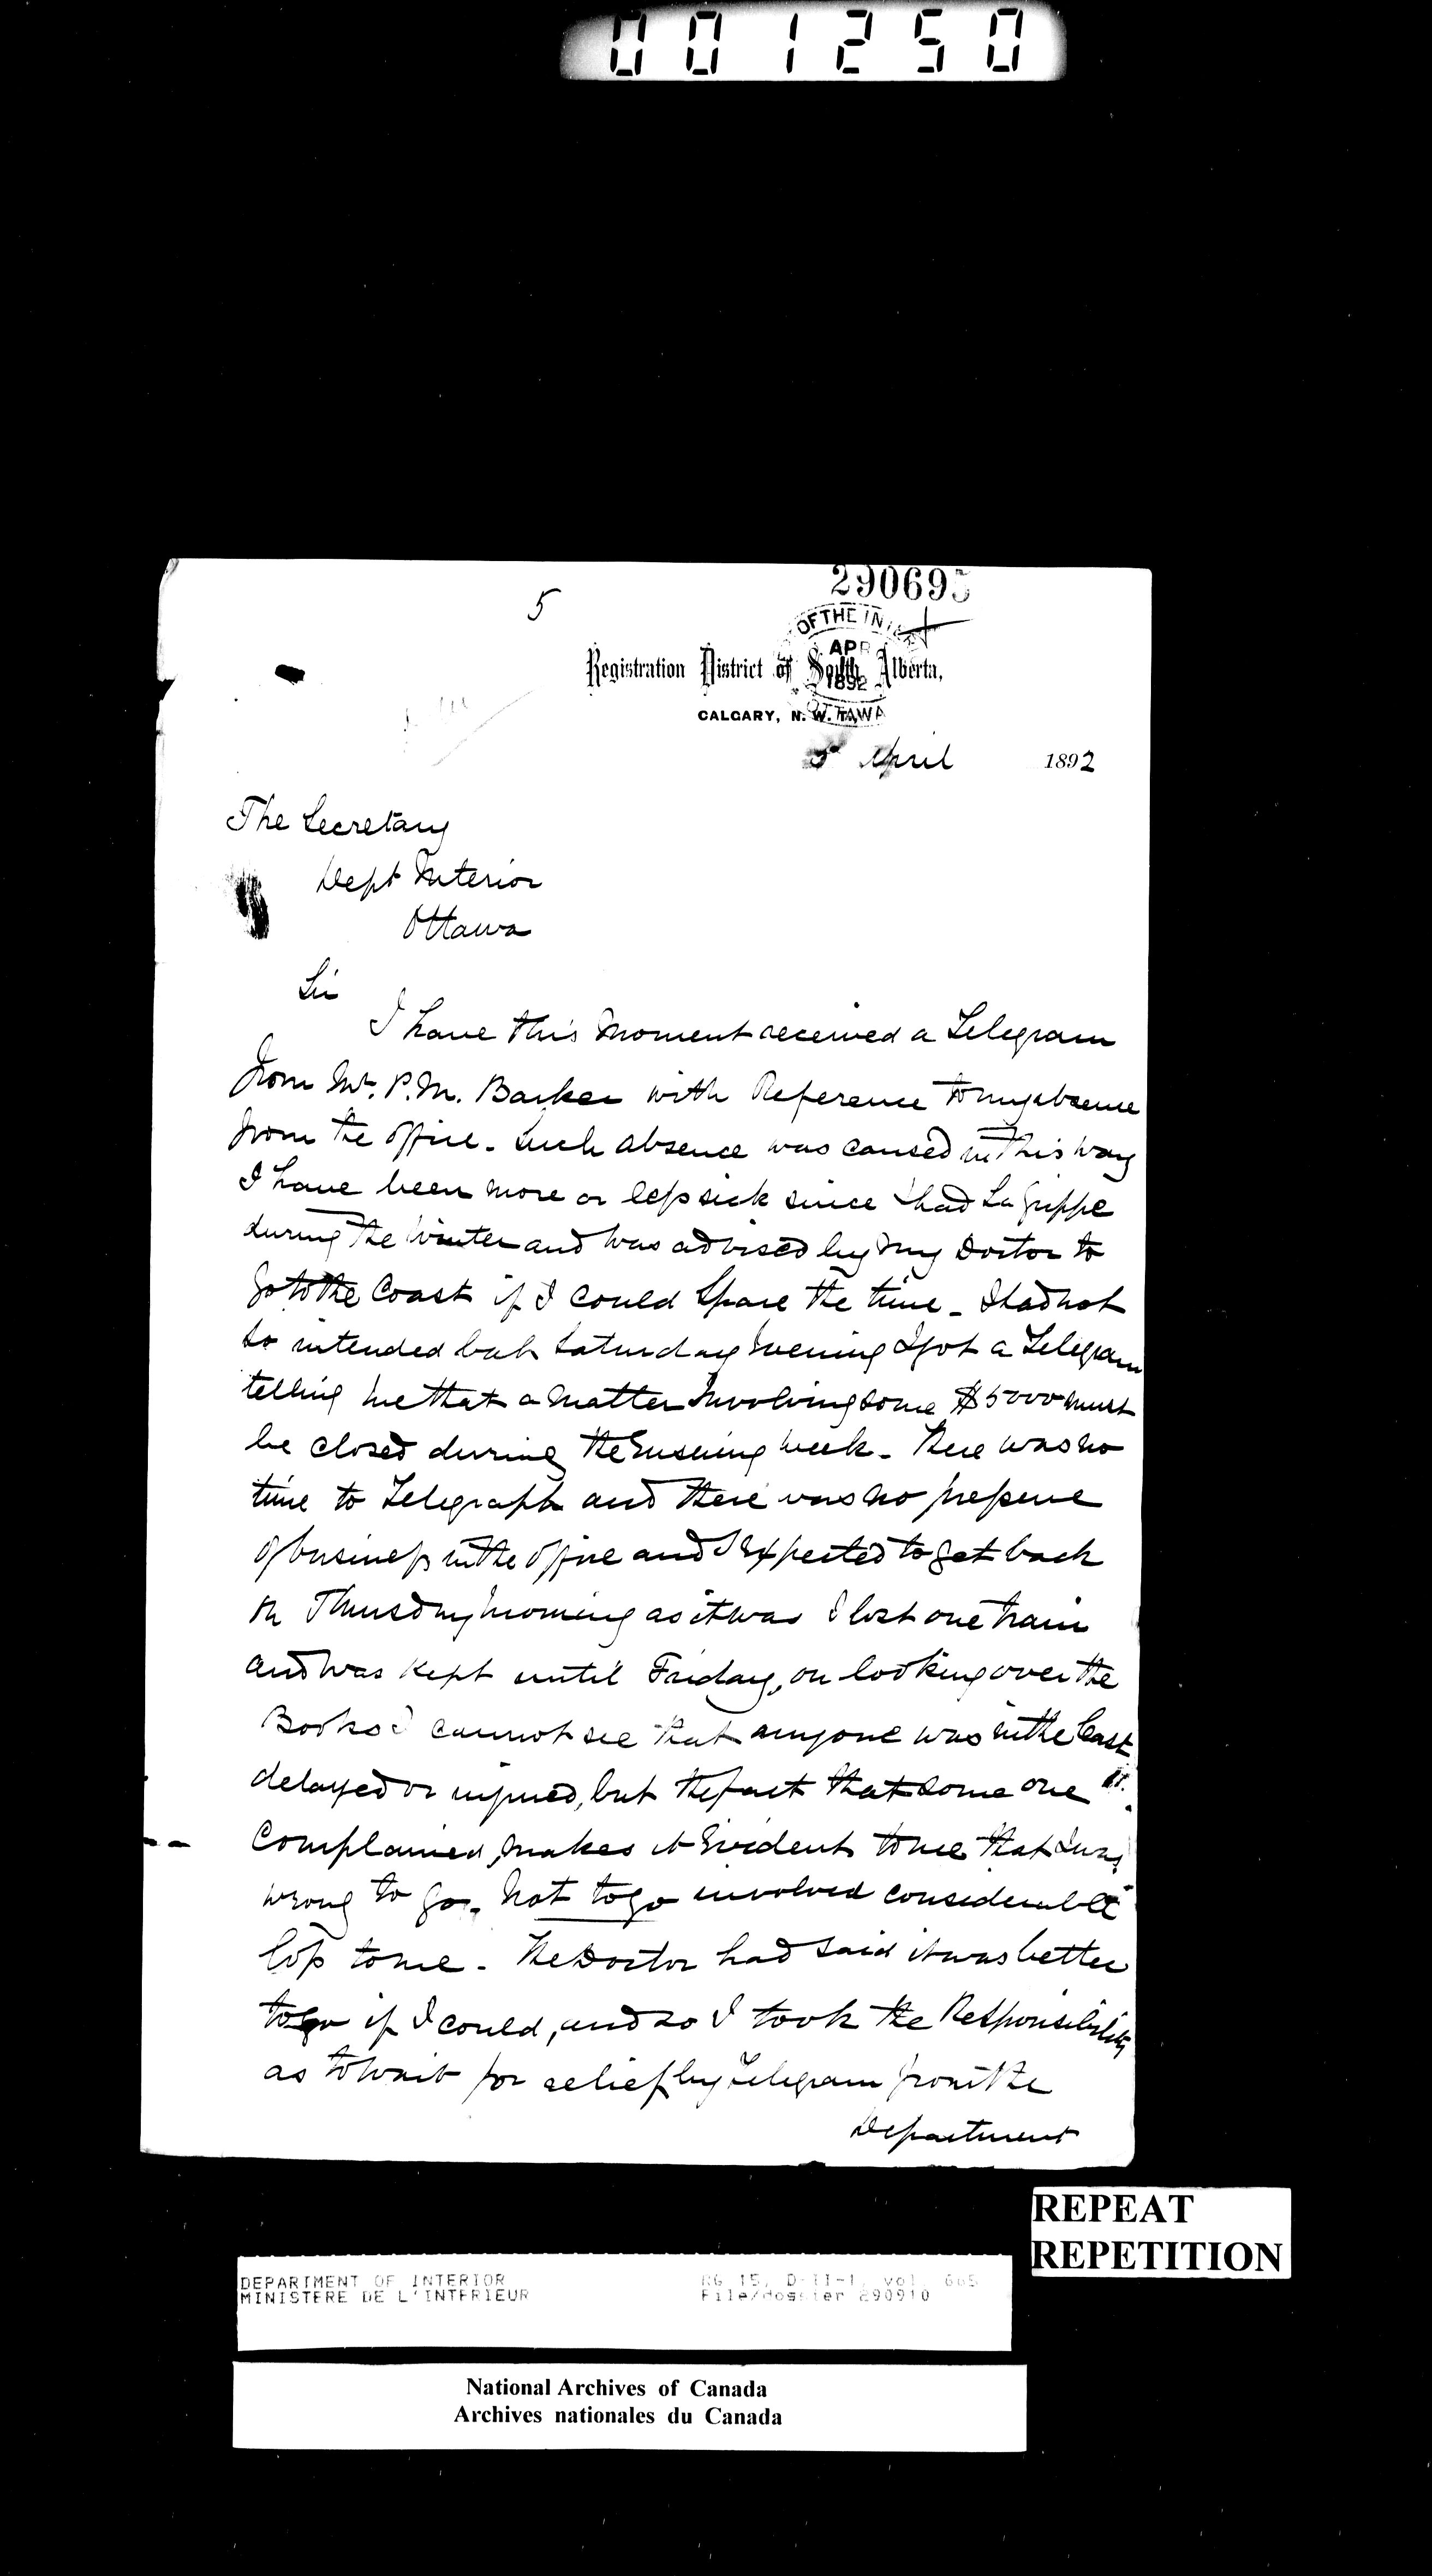 001250
5
290695
OF THE IN
APR
1892
OTTAWA
Registration District of South Alberta,
CALGARY, N. W. T.,
5 April 1892
The Secretary
Dept Interior
Ottawa
Sir
I have this moment received a Telegram
from Mr. P. M. Barker with Reference to my absence
from the office. Such absence was caused in this way
I have been more or less sick since I had La Grippe
during the Winter and was advised by my Doctor to
go to the Coast if I could Spare the time - I had not
so intended but Saturday Evening I got a Telegram
telling me that a matter Involving some $5000 must
be closed during the Ensuing week - There was no
time to Telegraph and there was no pressure
of business in the office and I Expected to get back
on Thursday morning as it was I lost one train
and was kept until Friday, on looking over the
Books I cannot see that anyone was in the least
delayed or injured, but the fact that some one
Complained, makes it Evident to me that I was
wrong to go. Not to go involved considerable
loss to me - The Doctor had said it was better
to go if I could, and so I took the Responsibility
as to wait for relief by Telegram from the
Department
REPEAT
REPETITION
DEPARTMENT OF INTERIOR
MINISTERE DE L'INTERIEUR
RG 15, D-II-1, vol. 665
File/dossier 290910
National Archives of Canada
Archives nationales du Canada